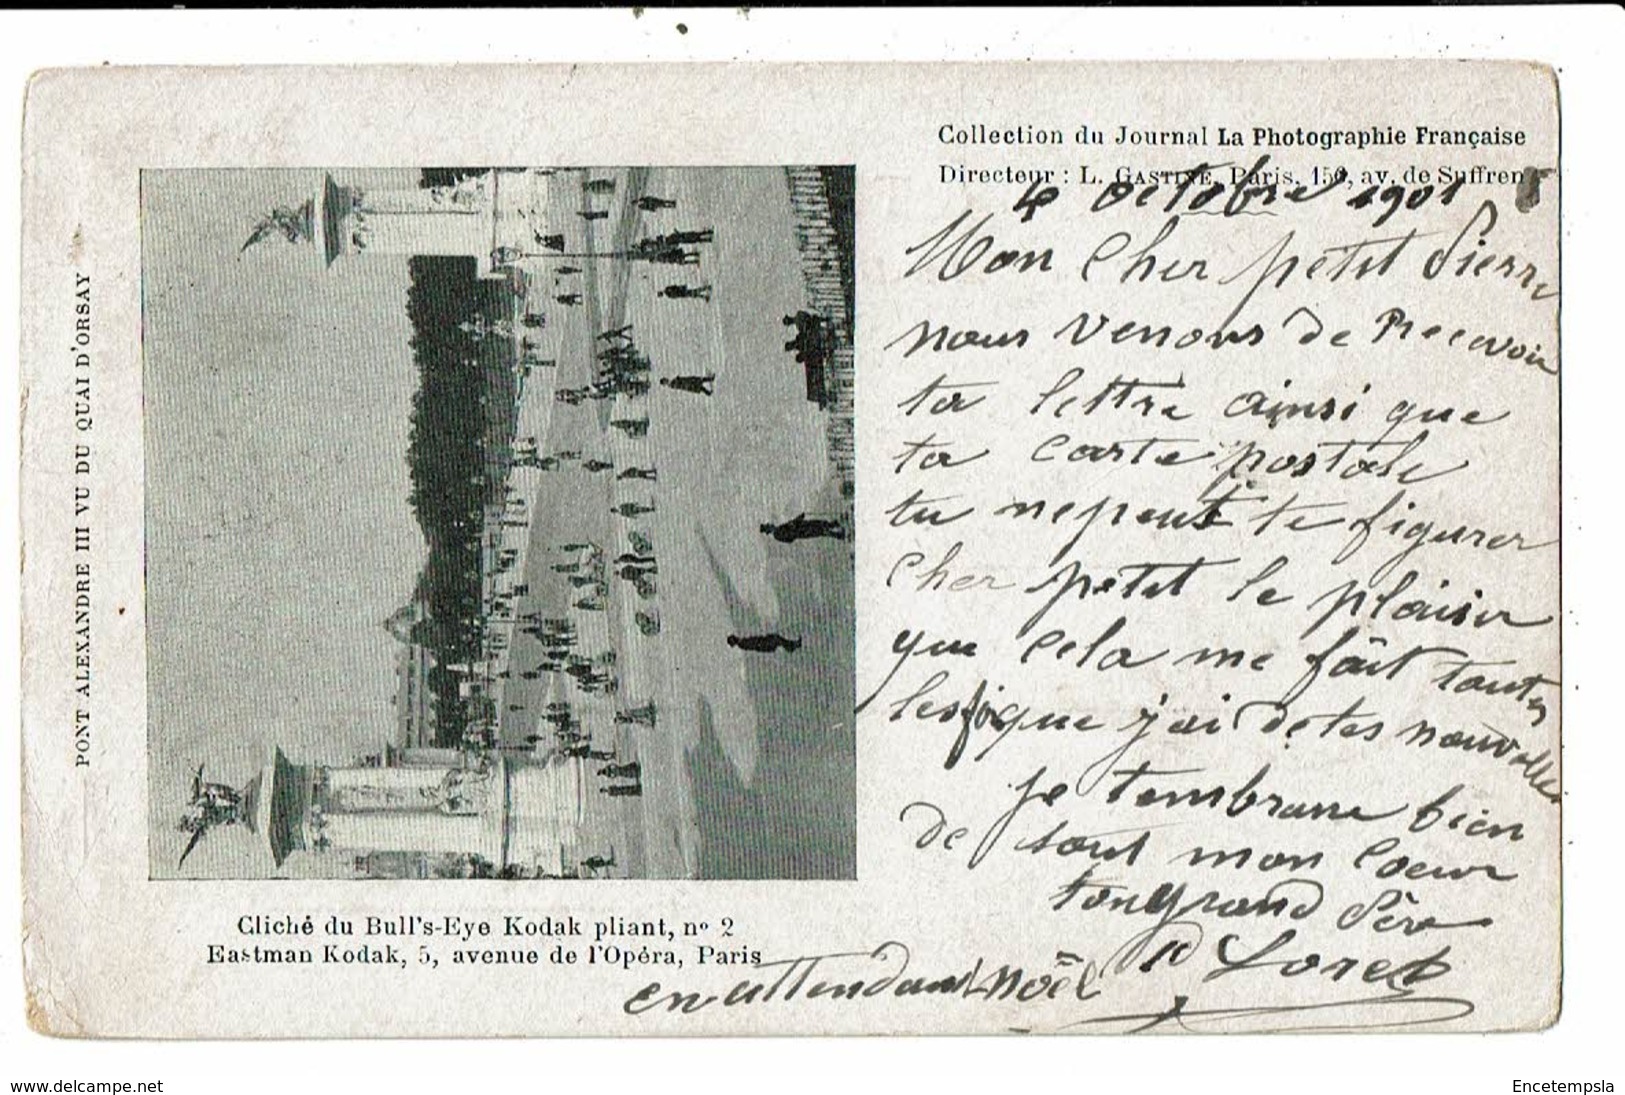 Collection du Journal La Photographie Française
Directeur : L. GASTINE, Paris. 150, av. de Suffren
4 octobre 1901
Mon cher petit Pierre
nous venons de Recevoir
ta lettre ainsi que
ta carte postale
tu ne peut te figurer
cher petit le plaisir
que cela me fait toutes
les fois que j'ai de tes nouvelles
je tembrasse bien
de tout mon coeur
ton grand Père
Loret
en attendant Noël
PONT ALEXANDRE III VU DU QUAI D'ORSAY
Cliché du Bull's-Eye Kodak pliant, no 2
Eastman Kodak, 5, avenue de l'Opéra, Paris
www.delcampe.net
Encetempsla